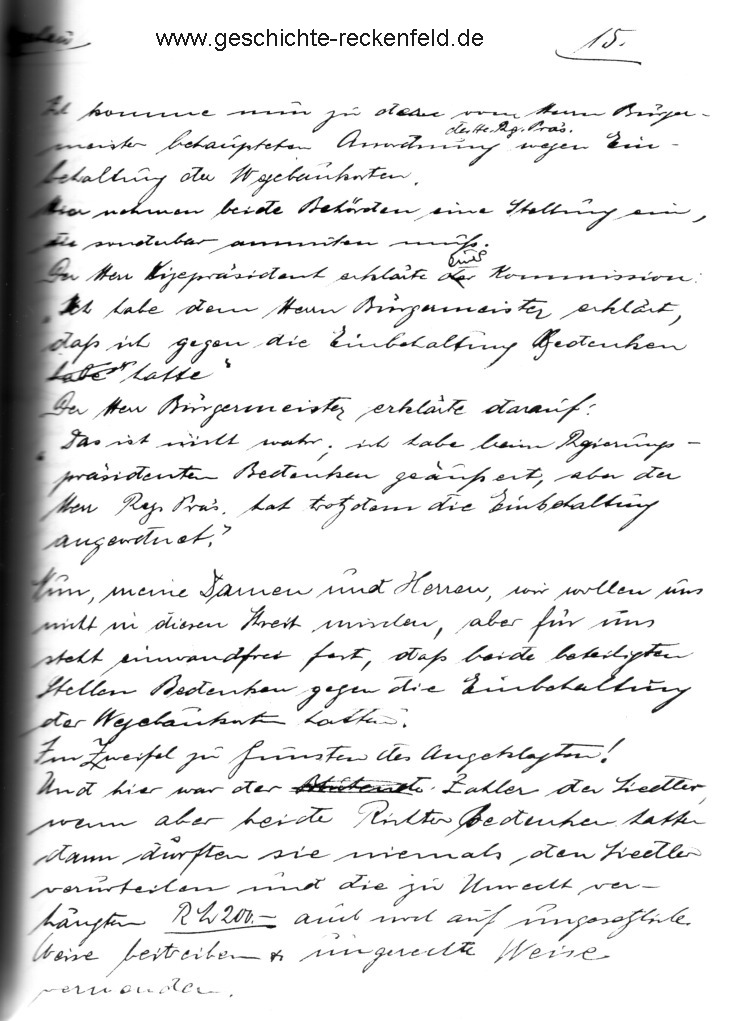 www.geschichte-reckenfeld.de
15.
Ich komme nun zu der vom Herrn Bürger-
des H. Rg. Präs.
meister behaupteten Anordnung wegen Ein-
behaltung der Wegebaukosten.
Hier nehmen beide Behörden eine Stellung ein,
die sonderbar anmuten muß.
einer
Der Herr Vizepräsident erklärte der Kommission:
„Ich habe dem Herrn Bürgermeister erklärt,
daß ich gegen die Einbehaltung Bedenken
habe" hatte"
Der Herr Bürgermeister erklärte darauf:
„Das ist nicht wahr, ich habe beim Regierungs-
präsidenten Bedenken geäußert, aber der
Herr Reg. Präs. hat trotzdem die Einbehaltung
angeordnet."
Nun, meine Damen und Herren, wir wollen uns
nicht in diesen Streit mischen, aber für uns
steht einwandfrei fest, daß beide beteiligten
Stellen Bedenken gegen die Einbehaltung
der Wegebaukosten hatten.
Im Zweifel zu Gunsten des Angeklagten!
Und hier war der Zahler der Siedler,
wenn aber beide Richter Bedenken hatten
dann dürften sie niemals den Siedler
verurteilen und die zu Unrecht ver-
hängten 200.- auch noch auf ungesetzliche
Weise beitreiben & ungerechte Weise
verwenden.